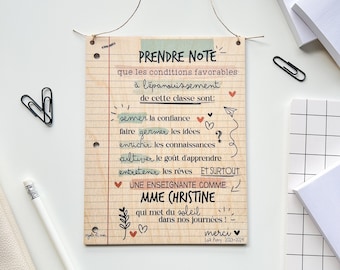 PRENDRE NOTE
que les conditions favorables
à l'épanouissement
de cette classe sont:
semer la confiance
faire germer les idées
enrichir les connaissances
?
cultiver le goût d'apprendre
entretenir les rêves ET SURTOUT
UNE ENSEIGNANTE COMME
MME CHRISTINE
qui met du soleil
dans nos journées !
merci